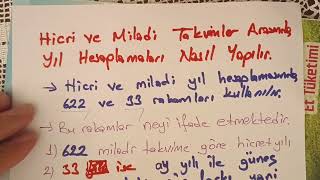 Hicri ve Miladi Takvimler Arasında
Yıl Hesaplamaları Nasıl Yapılır.
→ Hicri ve miladi yıl hesaplamasında
622 ve 33 rakamları kullanılır.
→ Bu rakamlar neyi ifade etmektedir.
1) 622 miladi takvime göre hicret yılı
2) 33 ise ay yılı ile güneş
farkı yani
Et Tüketimi